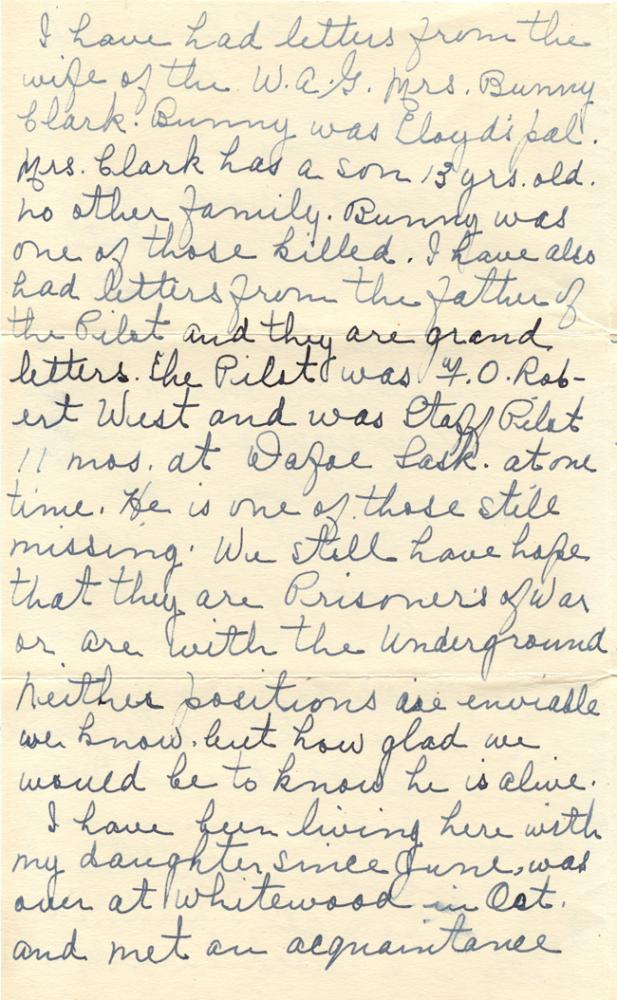 I have had letters from the
wife of the W.A.G. Mrs. Bunny
Clark. Bunny was Lloyd's pal.
Mrs. Clark has a son 13 yrs. old.
no other family. Bunny was
one of those killed. I have also
had letters from the father of
the Pilot and they are grand
letters. The Pilot was F.O. Rob-
ert West and was Staff Pilot
11 mos. at Dafoe Sask. at one
time. He is one of those still
missing. We still have hope
that they are Prisoner's of War
or are with the Underground
Neither positions are enviable
we know. but how glad we
would be to know he is alive.
I have been living here with
my daughter since June, was
over at Whitewood in Oct.
and met an acquaintance